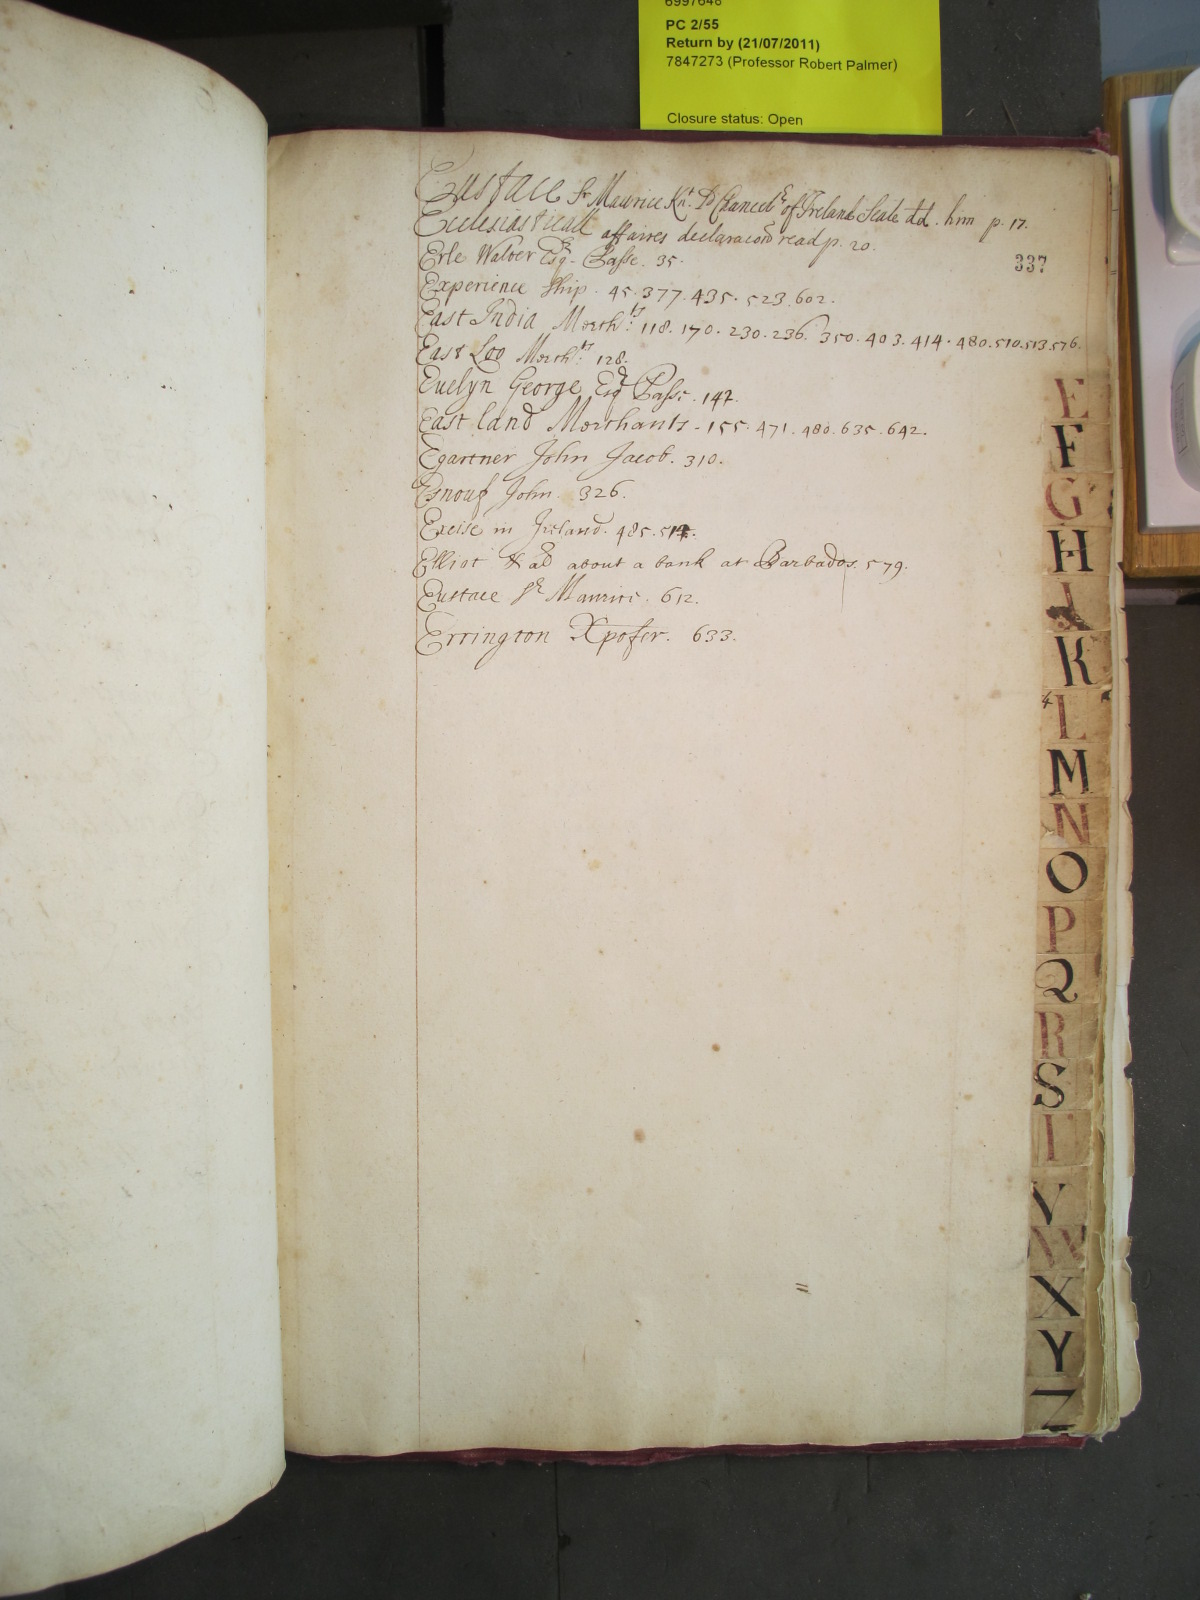 6997648
PC 2/55
Return by (21/07/2011)
7847273 (Professor Robert Palmer)
Closure status: Open
Eustace Sr Maurice Knt. Ld Chancelr of Ireland Seale dd. him p. 17.
Ecclesiasticall affaires declaracon read p. 20.
337
Erle Walter Esqr Passe. 35.
Experience ship. 45. 377. 435. 523. 602.
East India Merchts: 118. 170. 230. 236. 350. 403. 414. 480. 510. 513. 576.
East Loo Merchts: 128.
Euelyn George Esqr Passe. 147.
East land Merchants. 155. 471. 480. 635. 642.
Egartner John Jacob. 310.
Esnouf John. 326.
Excise in Ireland. 485. 514.
Elliot & al about a bank at Barbados. 579.
Eustace Sr Maurice. 612.
Errington Xpofer. 633.
E
F
G
H
I
K
L
M
N
O
P
Q
R
S
T
V
W
X
Y
Z